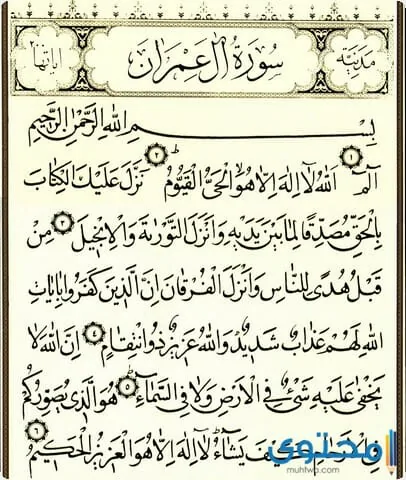 مدنية سورة آل عمران آياتها
بسم الله الرحمن الرحيم
الم ١ الله لا اله الا هو الحي القيوم ٢ نزل عليك الكتاب
بالحق مصدقا لما بين يديه وانزل التورية والانجيل ٣ من
قبل هدى للناس وانزل الفرقان ان الذين كفروا بايات
الله لهم عذاب شديد والله عزيز ذوانتقام ٤ ان الله لا
يخفى عليه شئ في الارض ولا في السماء ٥ هو الذي يصوركم
يشاء لا اله الا هو العزيز الحكيم ٦
محتوى
muhtwa.com